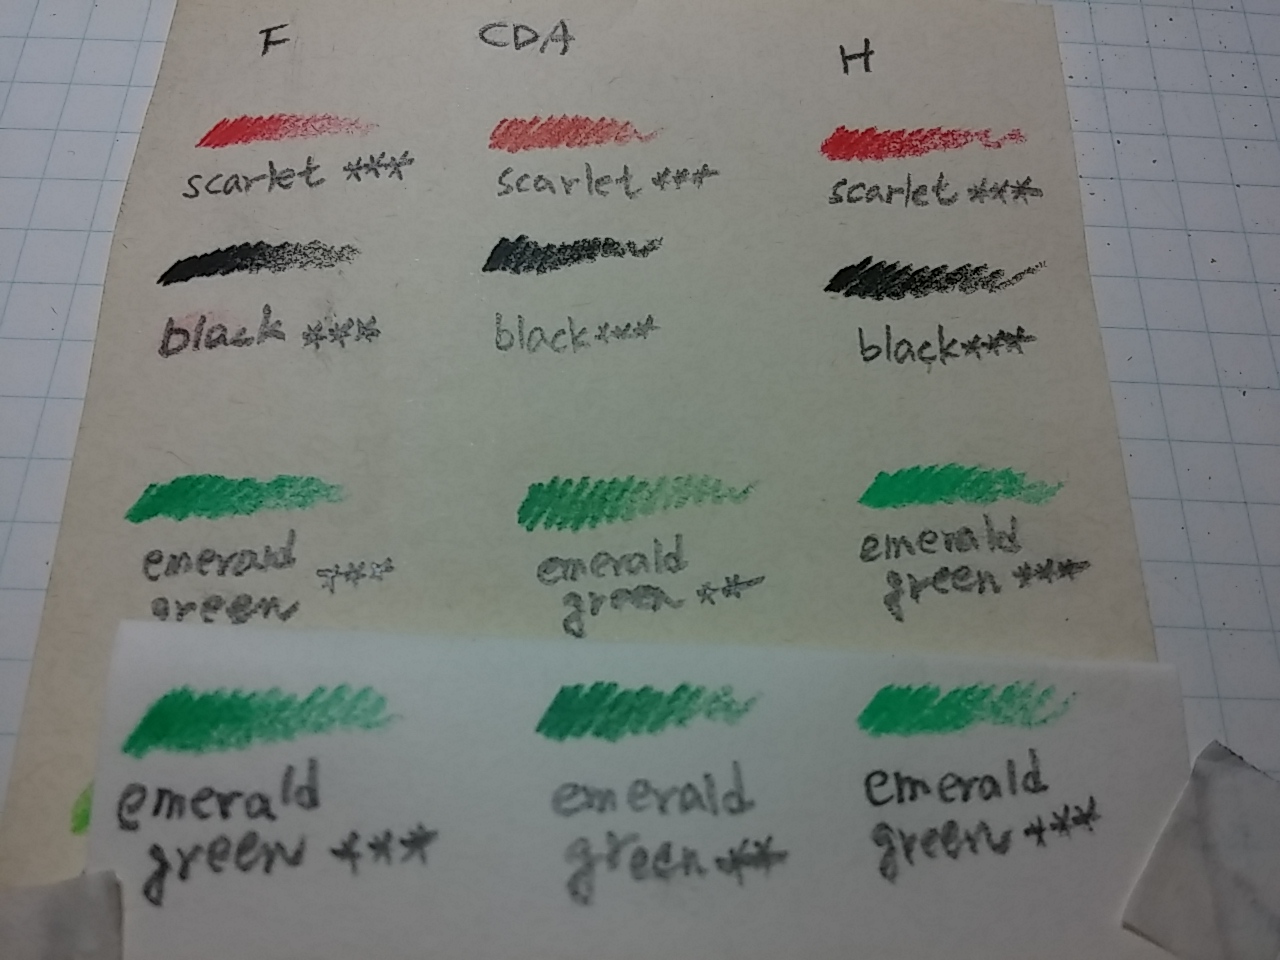 F CDA H
scarlet *** scarlet *** scarlet ***
black *** black*** black***
emerald emerald emerald
green *** green ** green ***
emerald emerald emerald
green *** green ** green ***